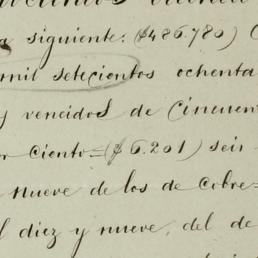 a siguiente: ($486.780) (
mil setecientos ochenta
y vencidos de cincuen
ciento=($ 6.201) seis
nueve de los de cobre=
l diez y nueve, del de